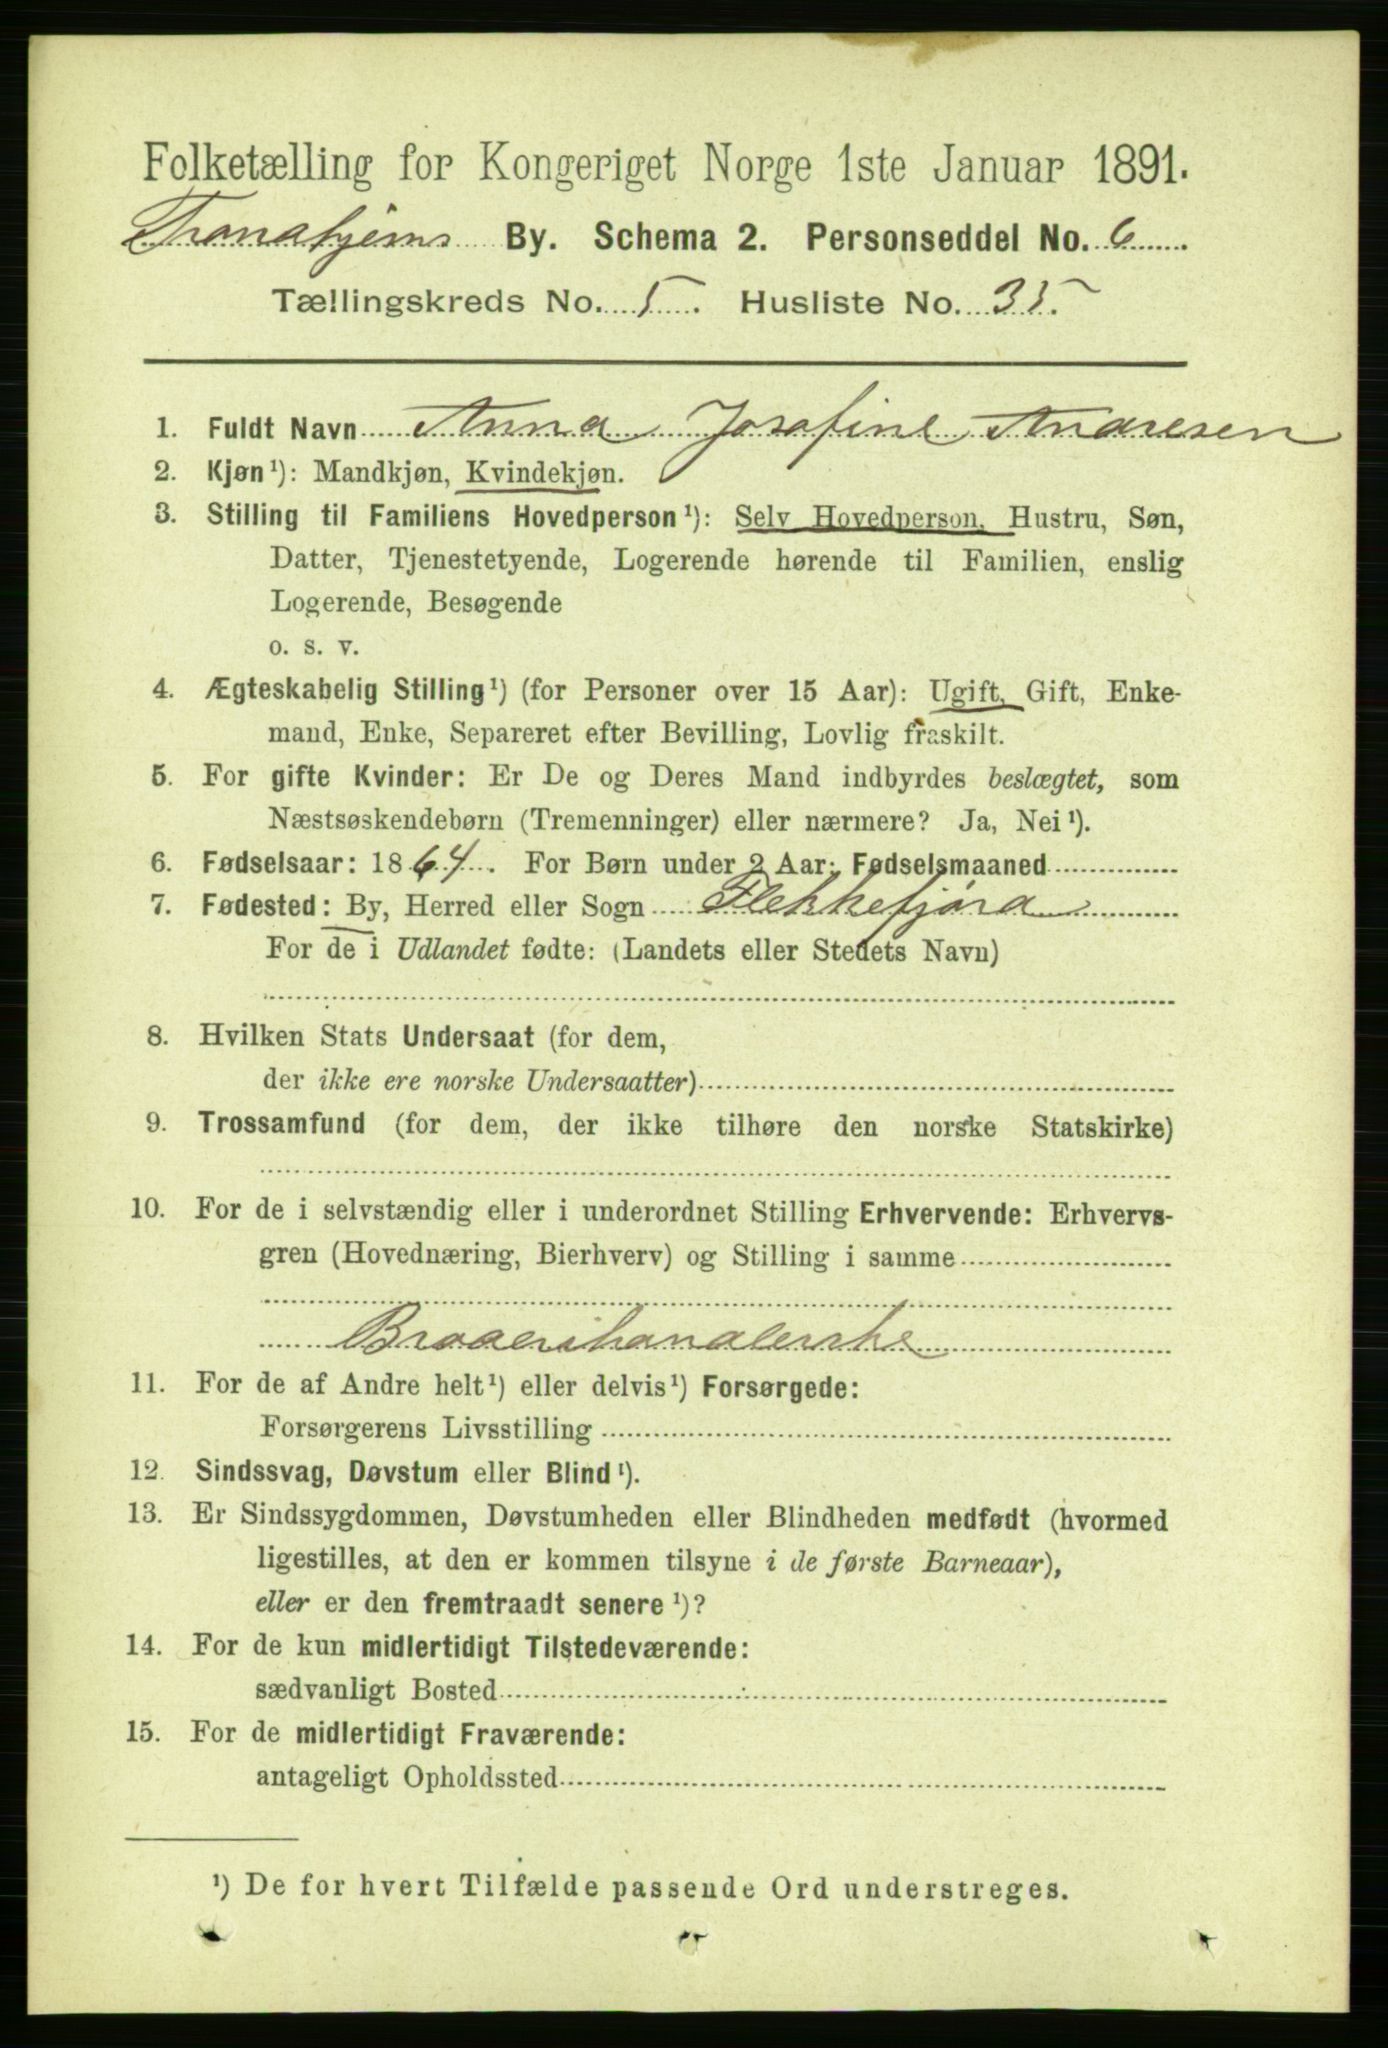 Folketælling for Kongeriget Norge 1ste Januar 1891.
Trondhjems By. Schema 2. Personseddel No. 6
Tællingskreds No. 5. Husliste No. 35.
1. Fuldt Navn Anna Josefine Andresen
2. Kjøn¹): Mandkjøn, Kvindekjøn.
3. Stilling til Familiens Hovedperson¹): Selv Hovedperson, Hustru, Søn,
Datter, Tjenestetyende, Logerende hørende til Familien, enslig
Logerende, Besøgende
o. s. v.
4. Ægteskabelig Stilling¹) (for Personer over 15 Aar): Ugift, Gift, Enke-
mand, Enke, Separeret efter Bevilling, Lovlig fraskilt.
5. For gifte Kvinder: Er De og Deres Mand indbyrdes beslægtet, som
Næstsøskendebørn (Tremenninger) eller nærmere? Ja, Nei¹).
6. Fødselsaar: 1864. For Børn under 2 Aar: Fødselsmaaned
7. Fødested: By, Herred eller Sogn Flekkefjord
For de i Udlandet fødte: (Landets eller Stedets Navn)
8. Hvilken Stats Undersaat (for dem,
der ikke ere norske Undersaatter)
9. Trossamfund (for dem, der ikke tilhøre den norske Statskirke)
10. For de i selvstændig eller i underordnet Stilling Erhvervende: Erhvervs-
gren (Hovednæring, Bierhverv) og Stilling i samme
Broderihandlerske
11. For de af Andre helt¹) eller delvis¹) Forsørgede:
Forsørgerens Livsstilling
12. Sindssvag, Døvstum eller Blind¹).
13. Er Sindssygdommen, Døvstumheden eller Blindheden medfødt (hvormed
ligestilles, at den er kommen tilsyne i de første Barneaar),
eller er den fremtraadt senere¹)?
14. For de kun midlertidigt Tilstedeværende:
sædvanligt Bosted
15. For de midlertidigt Fraværende:
antageligt Opholdssted
¹) De for hvert Tilfælde passende Ord understreges.